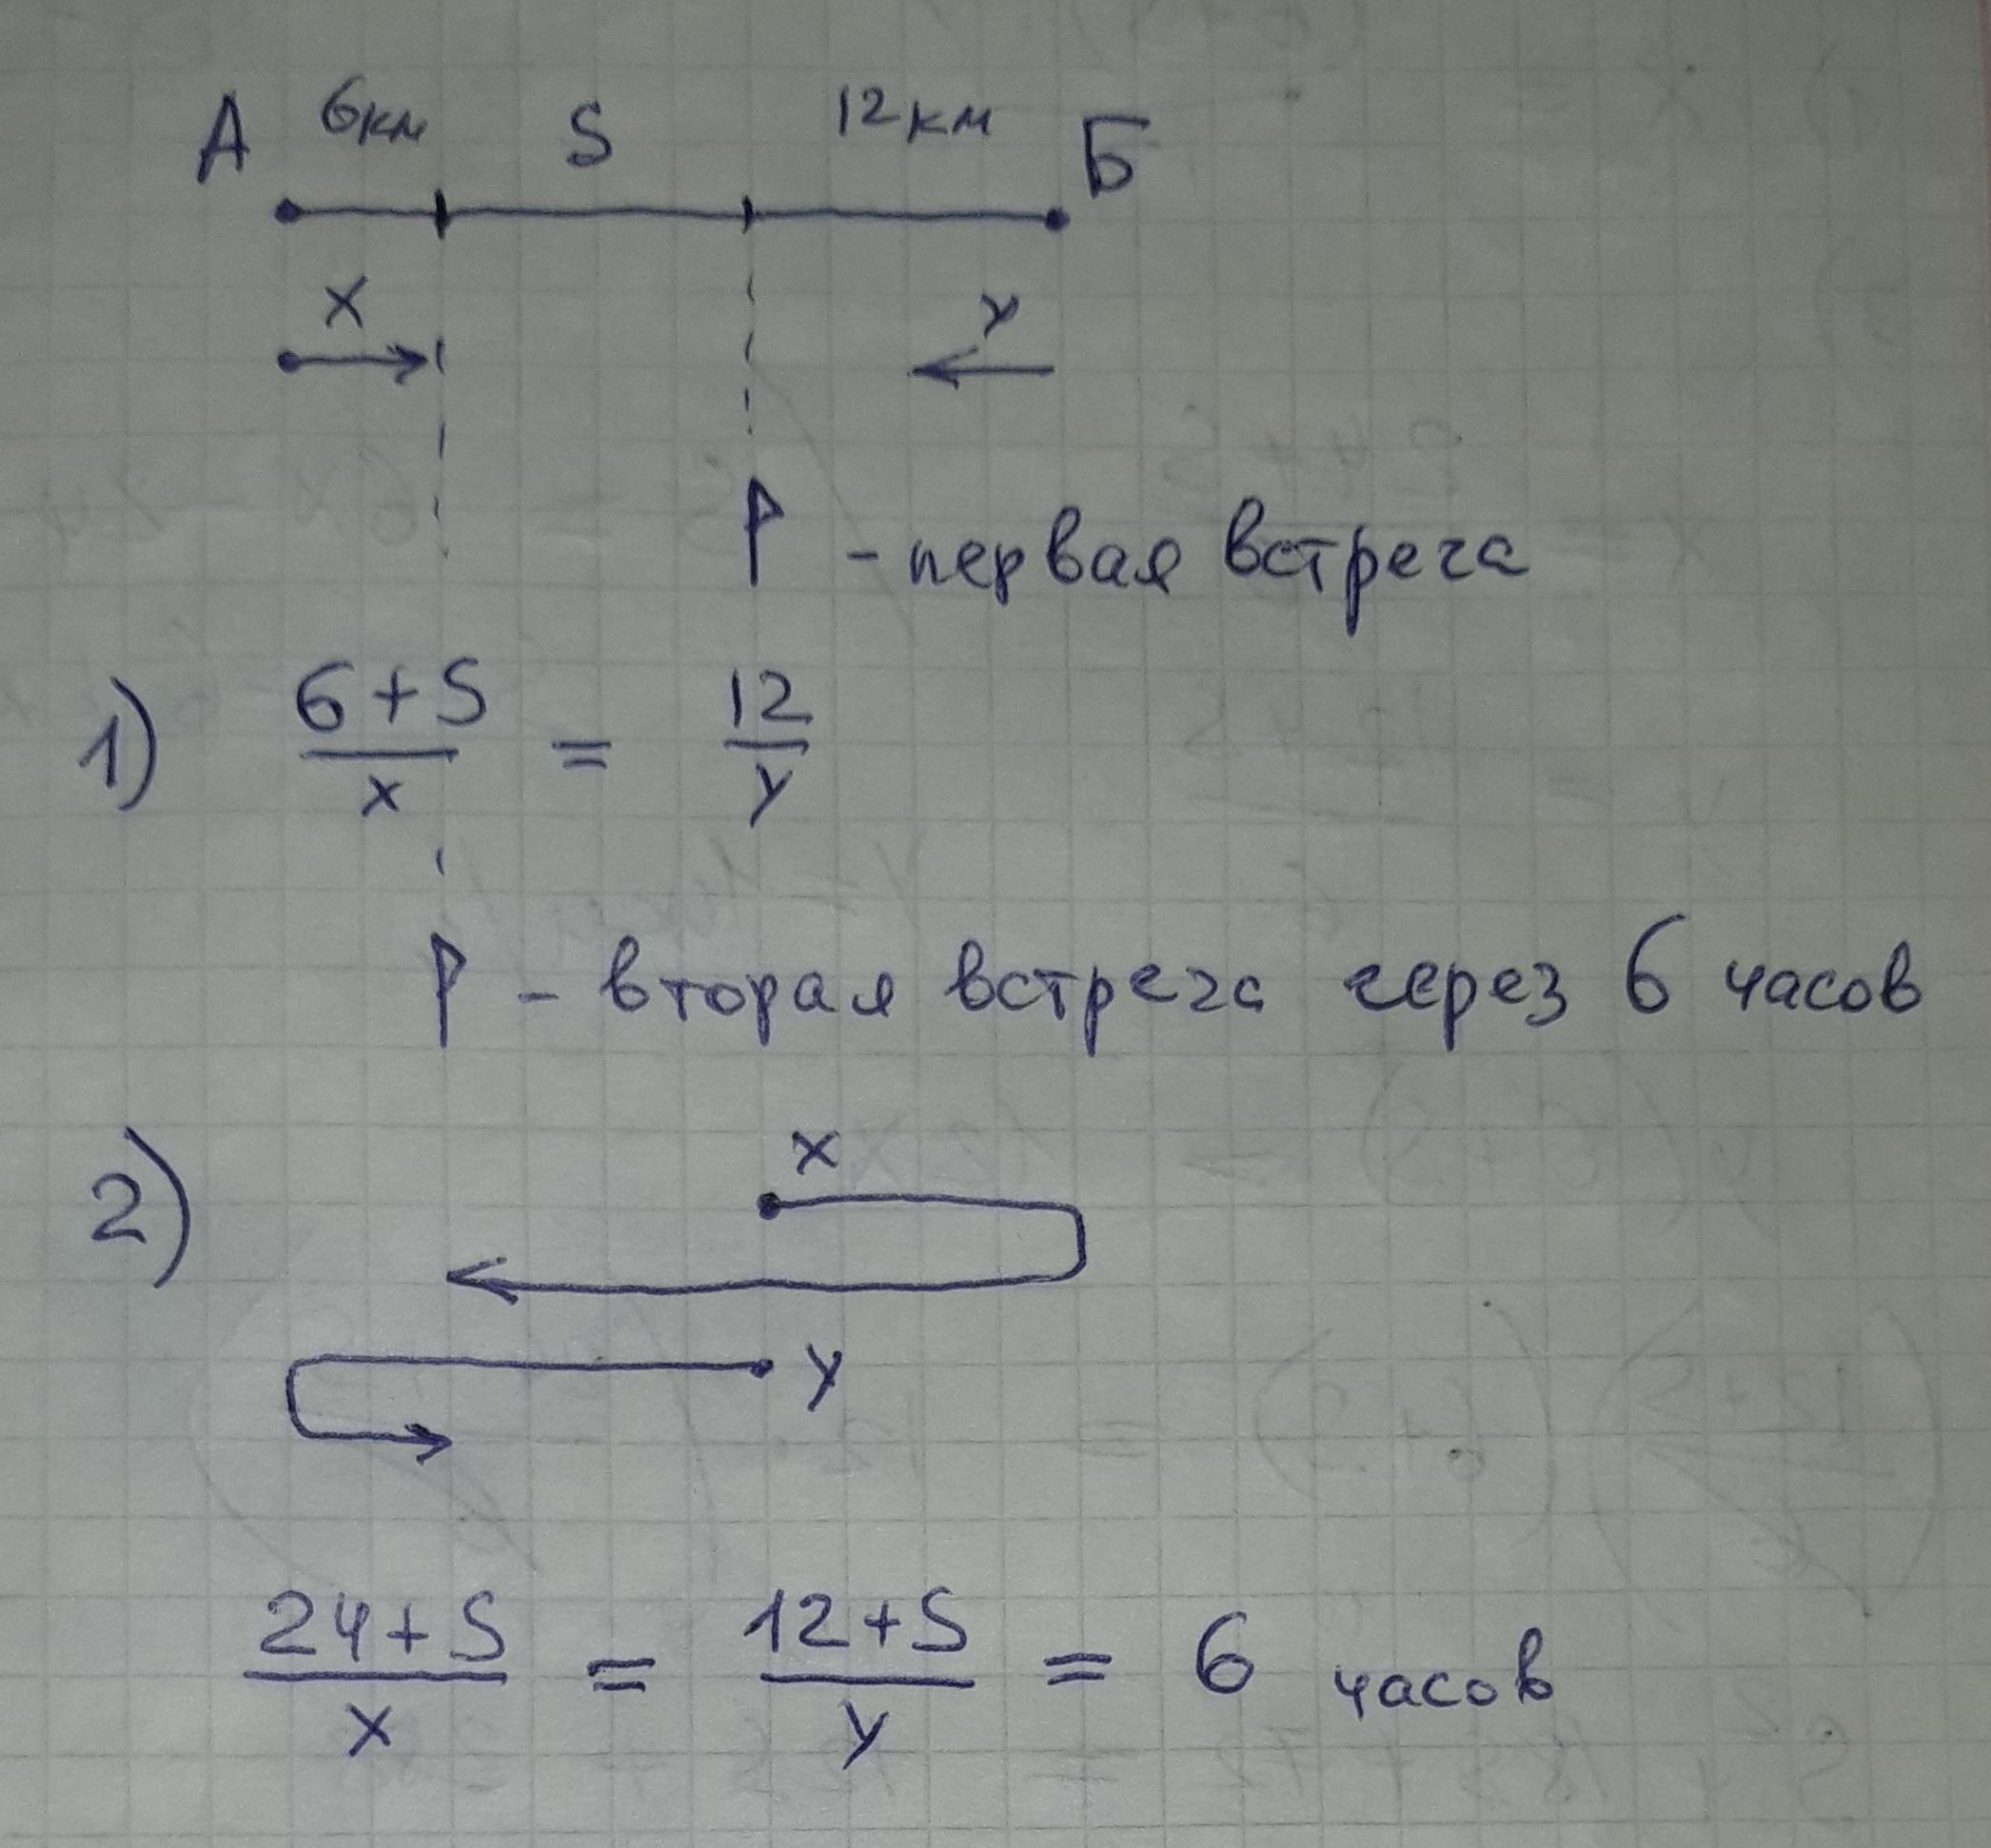 А 6км S 12км Б
x y
P - первая встреча
1) (6+S)/x = 12/y
P - вторая встреча через 6 часов
2) x
y
(24+S)/x = (12+S)/y = 6 часов